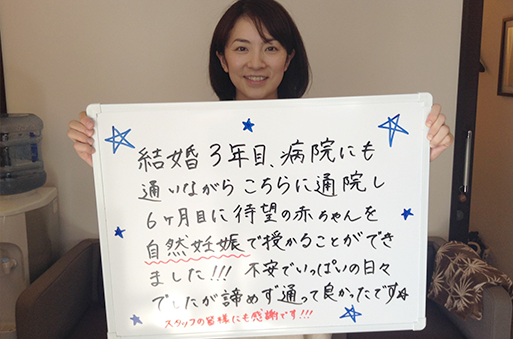 結婚3年目、病院にも
通いながらこちらに通院し
6ヶ月目に待望の赤ちゃんを
自然妊娠で授かることができ
ました!!! 不安でいっぱいの日々
でしたが諦めず通って良かったです☆
スタッフの皆様にも感謝です!!!